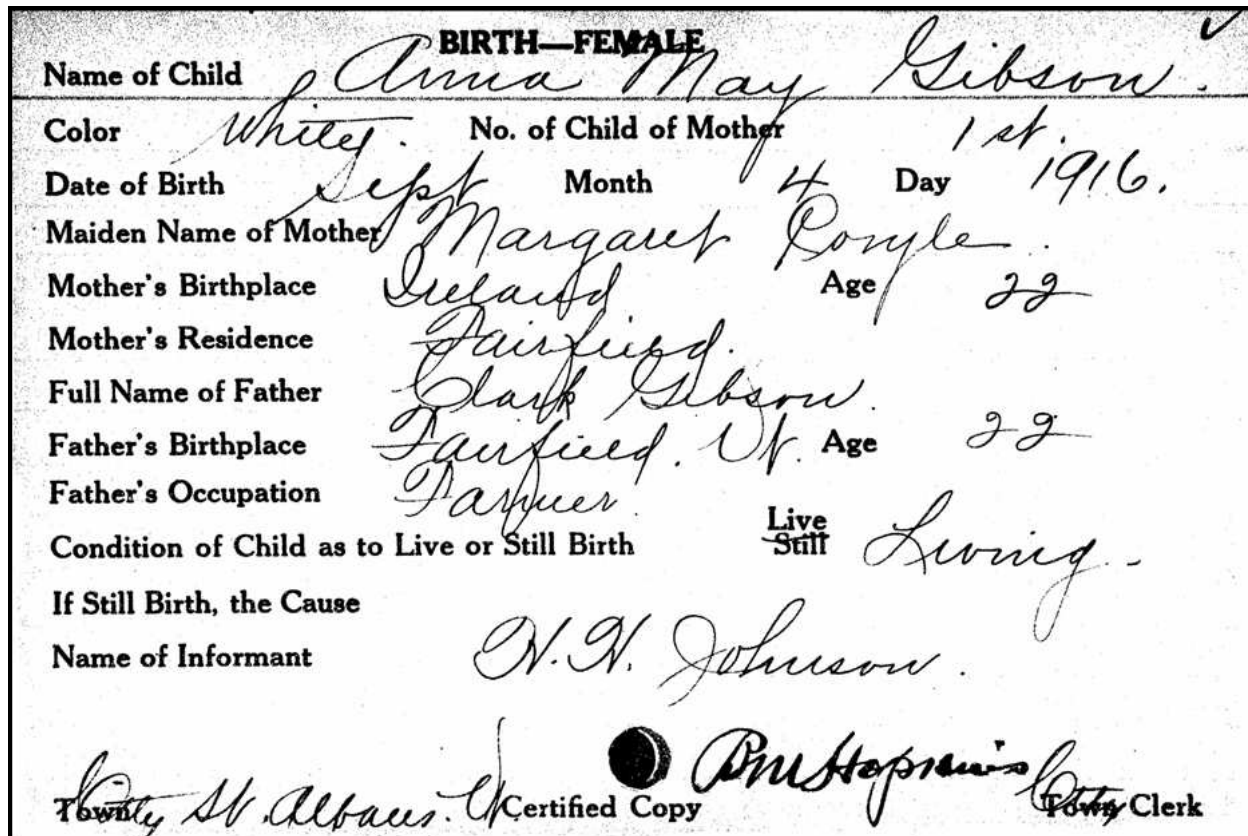 BIRTH—FEMALE
Name of Child Anna May Gibson.
Color White. No. of Child of Mother 1st.
Date of Birth Sept Month 4 Day 1916.
Maiden Name of Mother Margaret
Mother's Birthplace Ireland Age 22
Mother's Residence Fairfield.
Full Name of Father Clark Gibson.
Father's Birthplace Fairfield. Vt. Age 22
Father's Occupation Farmer.
Condition of Child as to Live or Still Birth Live Still Living -
If Still Birth, the Cause
Name of Informant H. H. Johnson.
City St. Albans. Vt Certified Copy City Clerk